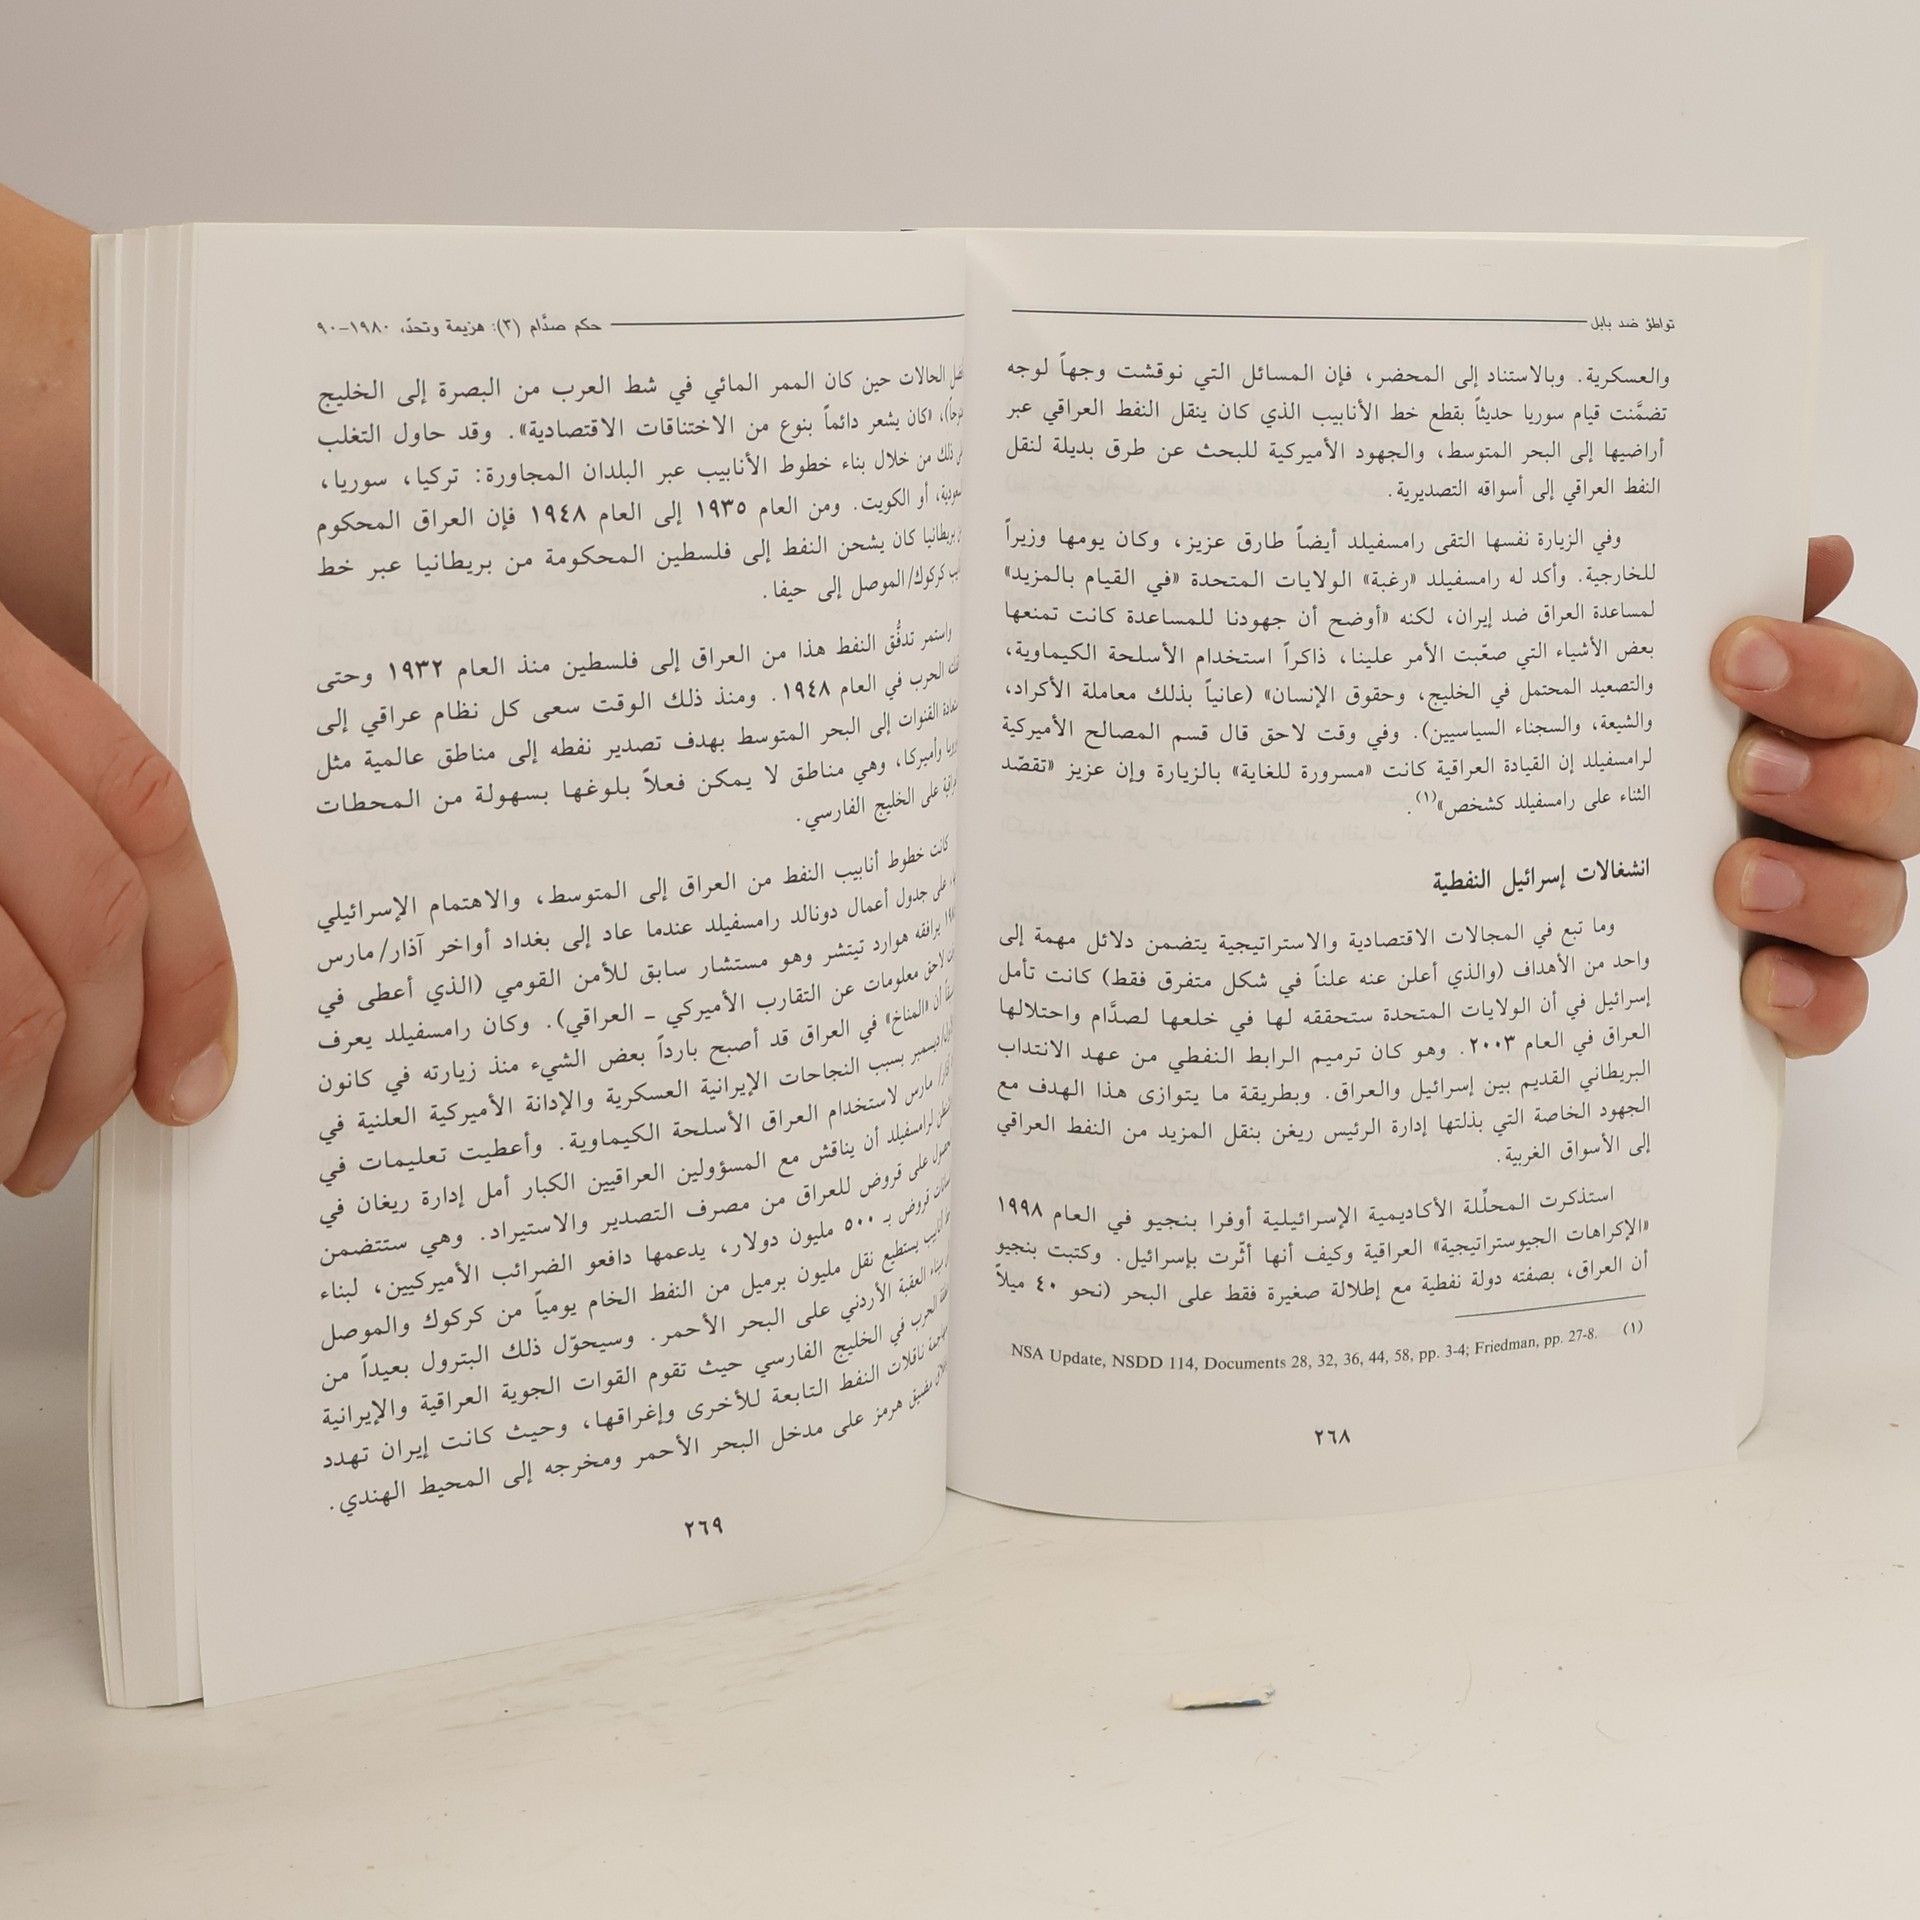 تواطؤ ضد بابل
والعسكرية. وبالاستناد إلى المحضر، فإن المسائل التي نوقشت وجهاً لوجه
تضمَّنت قيام سوريا حديثاً بقطع خط الأنابيب الذي كان ينقل النفط العراقي عبر
أراضيها إلى البحر المتوسط، والجهود الأميركية للبحث عن طرق بديلة لنقل
النفط العراقي إلى أسواقه التصديرية.
وفي الزيارة نفسها التقى رامسفيلد أيضاً طارق عزيز، وكان يومها وزيراً
للخارجية. وأكد له رامسفيلد «رغبة» الولايات المتحدة «في القيام بالمزيد»
لمساعدة العراق ضد إيران، لكنه «أوضح أن جهودنا للمساعدة كانت تمنعها
بعض الأشياء التي صعّبت الأمر علينا، ذاكراً استخدام الأسلحة الكيماوية،
والتصعيد المحتمل في الخليج، وحقوق الإنسان» (عانياً بذلك معاملة الأكراد،
والشيعة، والسجناء السياسيين). وفي وقت لاحق قال قسم المصالح الأميركية
لرامسفيلد إن القيادة العراقية كانت «مسرورة للغاية» بالزيارة وإن عزيز «تقصّد
الثناء على رامسفيلد كشخص»(١).
انشغالات إسرائيل النفطية
وما تبع في المجالات الاقتصادية والاستراتيجية يتضمن دلائل مهمة إلى
واحد من الأهداف (والذي أعلن عنه علناً في شكل متفرق فقط) كانت تأمل
إسرائيل في أن الولايات المتحدة ستحققه لها في خلعها لصدَّام واحتلالها
العراق في العام ٢٠٠٣. وهو كان ترميم الرابط النفطي من عهد الانتداب
البريطاني القديم بين إسرائيل والعراق. وبطريقة ما يتوازى هذا الهدف مع
الجهود الخاصة التي بذلتها إدارة الرئيس ريغن بنقل المزيد من النفط العراقي
إلى الأسواق الغربية.
استذكرت المحلِّلة الأكاديمية الإسرائيلية أوفرا بنجيو في العام ١٩٩٨
«الإكراهات الجيوستراتيجية» العراقية وكيف أنها أثّرت بإسرائيل. وكتبت بنجيو
أن العراق، بصفته دولة نفطية مع إطلالة صغيرة فقط على البحر (نحو ٤٠ ميلاً
(١) NSA Update, NSDD 114, Documents 28, 32, 36, 44, 58, pp. 3-4; Friedman, pp. 27-8.
٢٦٨
حكم صدَّام (٣): هزيمة وتحدّ، ١٩٨٠–٩٠
الحالات حين كان الممر المائي في شط العرب من البصرة إلى الخليج
«كان يشعر دائماً بنوع من الاختناقات الاقتصادية». وقد حاول التغلب
ذلك من خلال بناء خطوط الأنابيب عبر البلدان المجاورة: تركيا، سوريا،
أو الكويت. ومن العام ١٩٣٥ إلى العام ١٩٤٨ فإن العراق المحكوم
بريطانيا كان يشحن النفط إلى فلسطين المحكومة من بريطانيا عبر خط
كركوك/الموصل إلى حيفا.
واستمر تدفُّق النفط هذا من العراق إلى فلسطين منذ العام ١٩٣٢ وحتى
الحرب في العام ١٩٤٨. ومنذ ذلك الوقت سعى كل نظام عراقي إلى
القنوات إلى البحر المتوسط بهدف تصدير نفطه إلى مناطق عالمية مثل
وأميركا، وهي مناطق لا يمكن فعلاً بلوغها بسهولة من المحطات
على الخليج الفارسي.
كانت خطوط أنابيب النفط من العراق إلى المتوسط، والاهتمام الإسرائيلي
على جدول أعمال دونالد رامسفيلد عندما عاد إلى بغداد أواخر آذار/مارس
يرافقه هوارد تيتشر وهو مستشار سابق للأمن القومي (الذي أعطى في
لاحق معلومات عن التقارب الأميركي ـ العراقي). وكان رامسفيلد يعرف
أن «المناخ» في العراق قد أصبح بارداً بعض الشيء منذ زيارته في كانون
ديسمبر بسبب النجاحات الإيرانية العسكرية والإدانة الأميركية العلنية في
مارس لاستخدام العراق الأسلحة الكيماوية. وأعطيت تعليمات في
لرامسفيلد أن يناقش مع المسؤولين العراقيين الكبار أمل إدارة ريغان في
على قروض للعراق من مصرف التصدير والاستيراد. وهي ستتضمن
قروض بـ ٥٠٠ مليون دولار، يدعمها دافعو الضرائب الأميركيين، لبناء
أنابيب يستطيع نقل مليون برميل من النفط الخام يومياً من كركوك والموصل
ميناء العقبة الأردني على البحر الأحمر. وسيحوّل ذلك البترول بعيداً من
الحرب في الخليج الفارسي حيث تقوم القوات الجوية العراقية والإيرانية
ناقلات النفط التابعة للأخرى وإغراقها، وحيث كانت إيران تهدد
مضيق هرمز على مدخل البحر الأحمر ومخرجه إلى المحيط الهندي.
٢٦٩